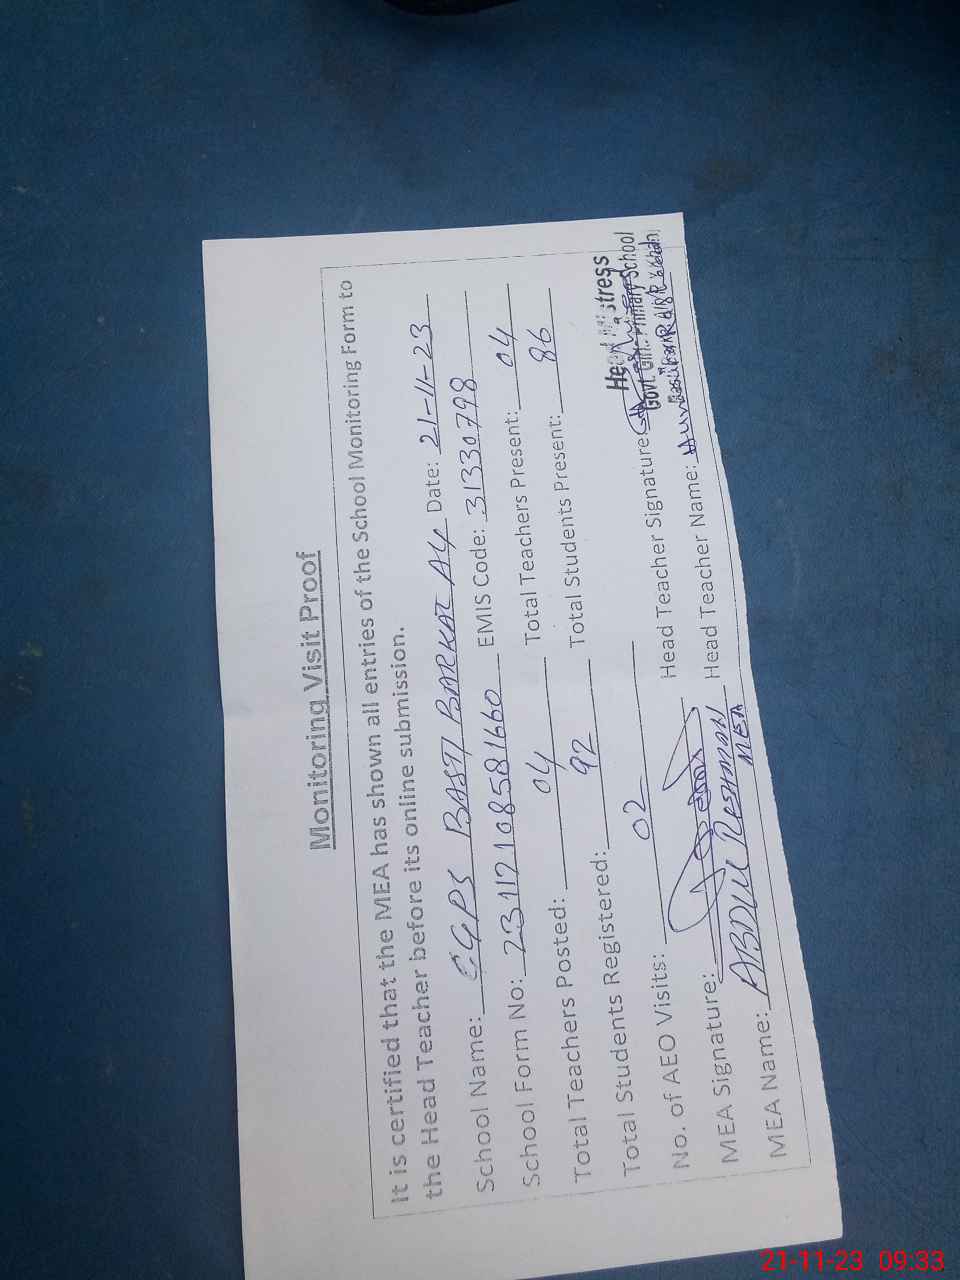 Monitoring Visit Proof
It is certified that the MEA has shown all entries of the School Monitoring Form to
the Head Teacher before its online submission.
School Name: GGPS BASTI BARKAT Date: 21-11-23
School Form No: 23112108581660 EMIS Code: 31330798
Total Teachers Posted: 04 Total Teachers Present: 04
Total Students Registered: 92 Total Students Present: 86
No. of AEO Visits: 02
MEA Signature: Head Teacher Signature
MEA Name: ABDUL REHMAN Head Teacher Name:
MEA
Head Mistress
Govt. Girls Primary School
21-11-23 09:33